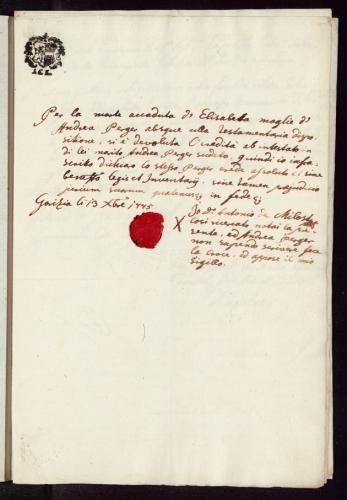 Per la morte accaduta di Elisabeta moglie d'
Andrea Perger absque ulla testamentaria dispo-
sitione, si è devoluta l'eredità ab intestato in
di lei marito Andrea Perger sudeto, quindi io infra-
scrito dichiaro lo stesso Perger erede absolute et sine
beneffo legis et Inventarij, sine tamen prejudicio
jurium quorum in fede
Gorizia li 13 Xbre 1775
X Io D. Antonio de
cosi ricercato notai la pre-
sente, ed Andrea Perger
non sapendo scrivere fece
la croce, ed appose il mio
sigillo.